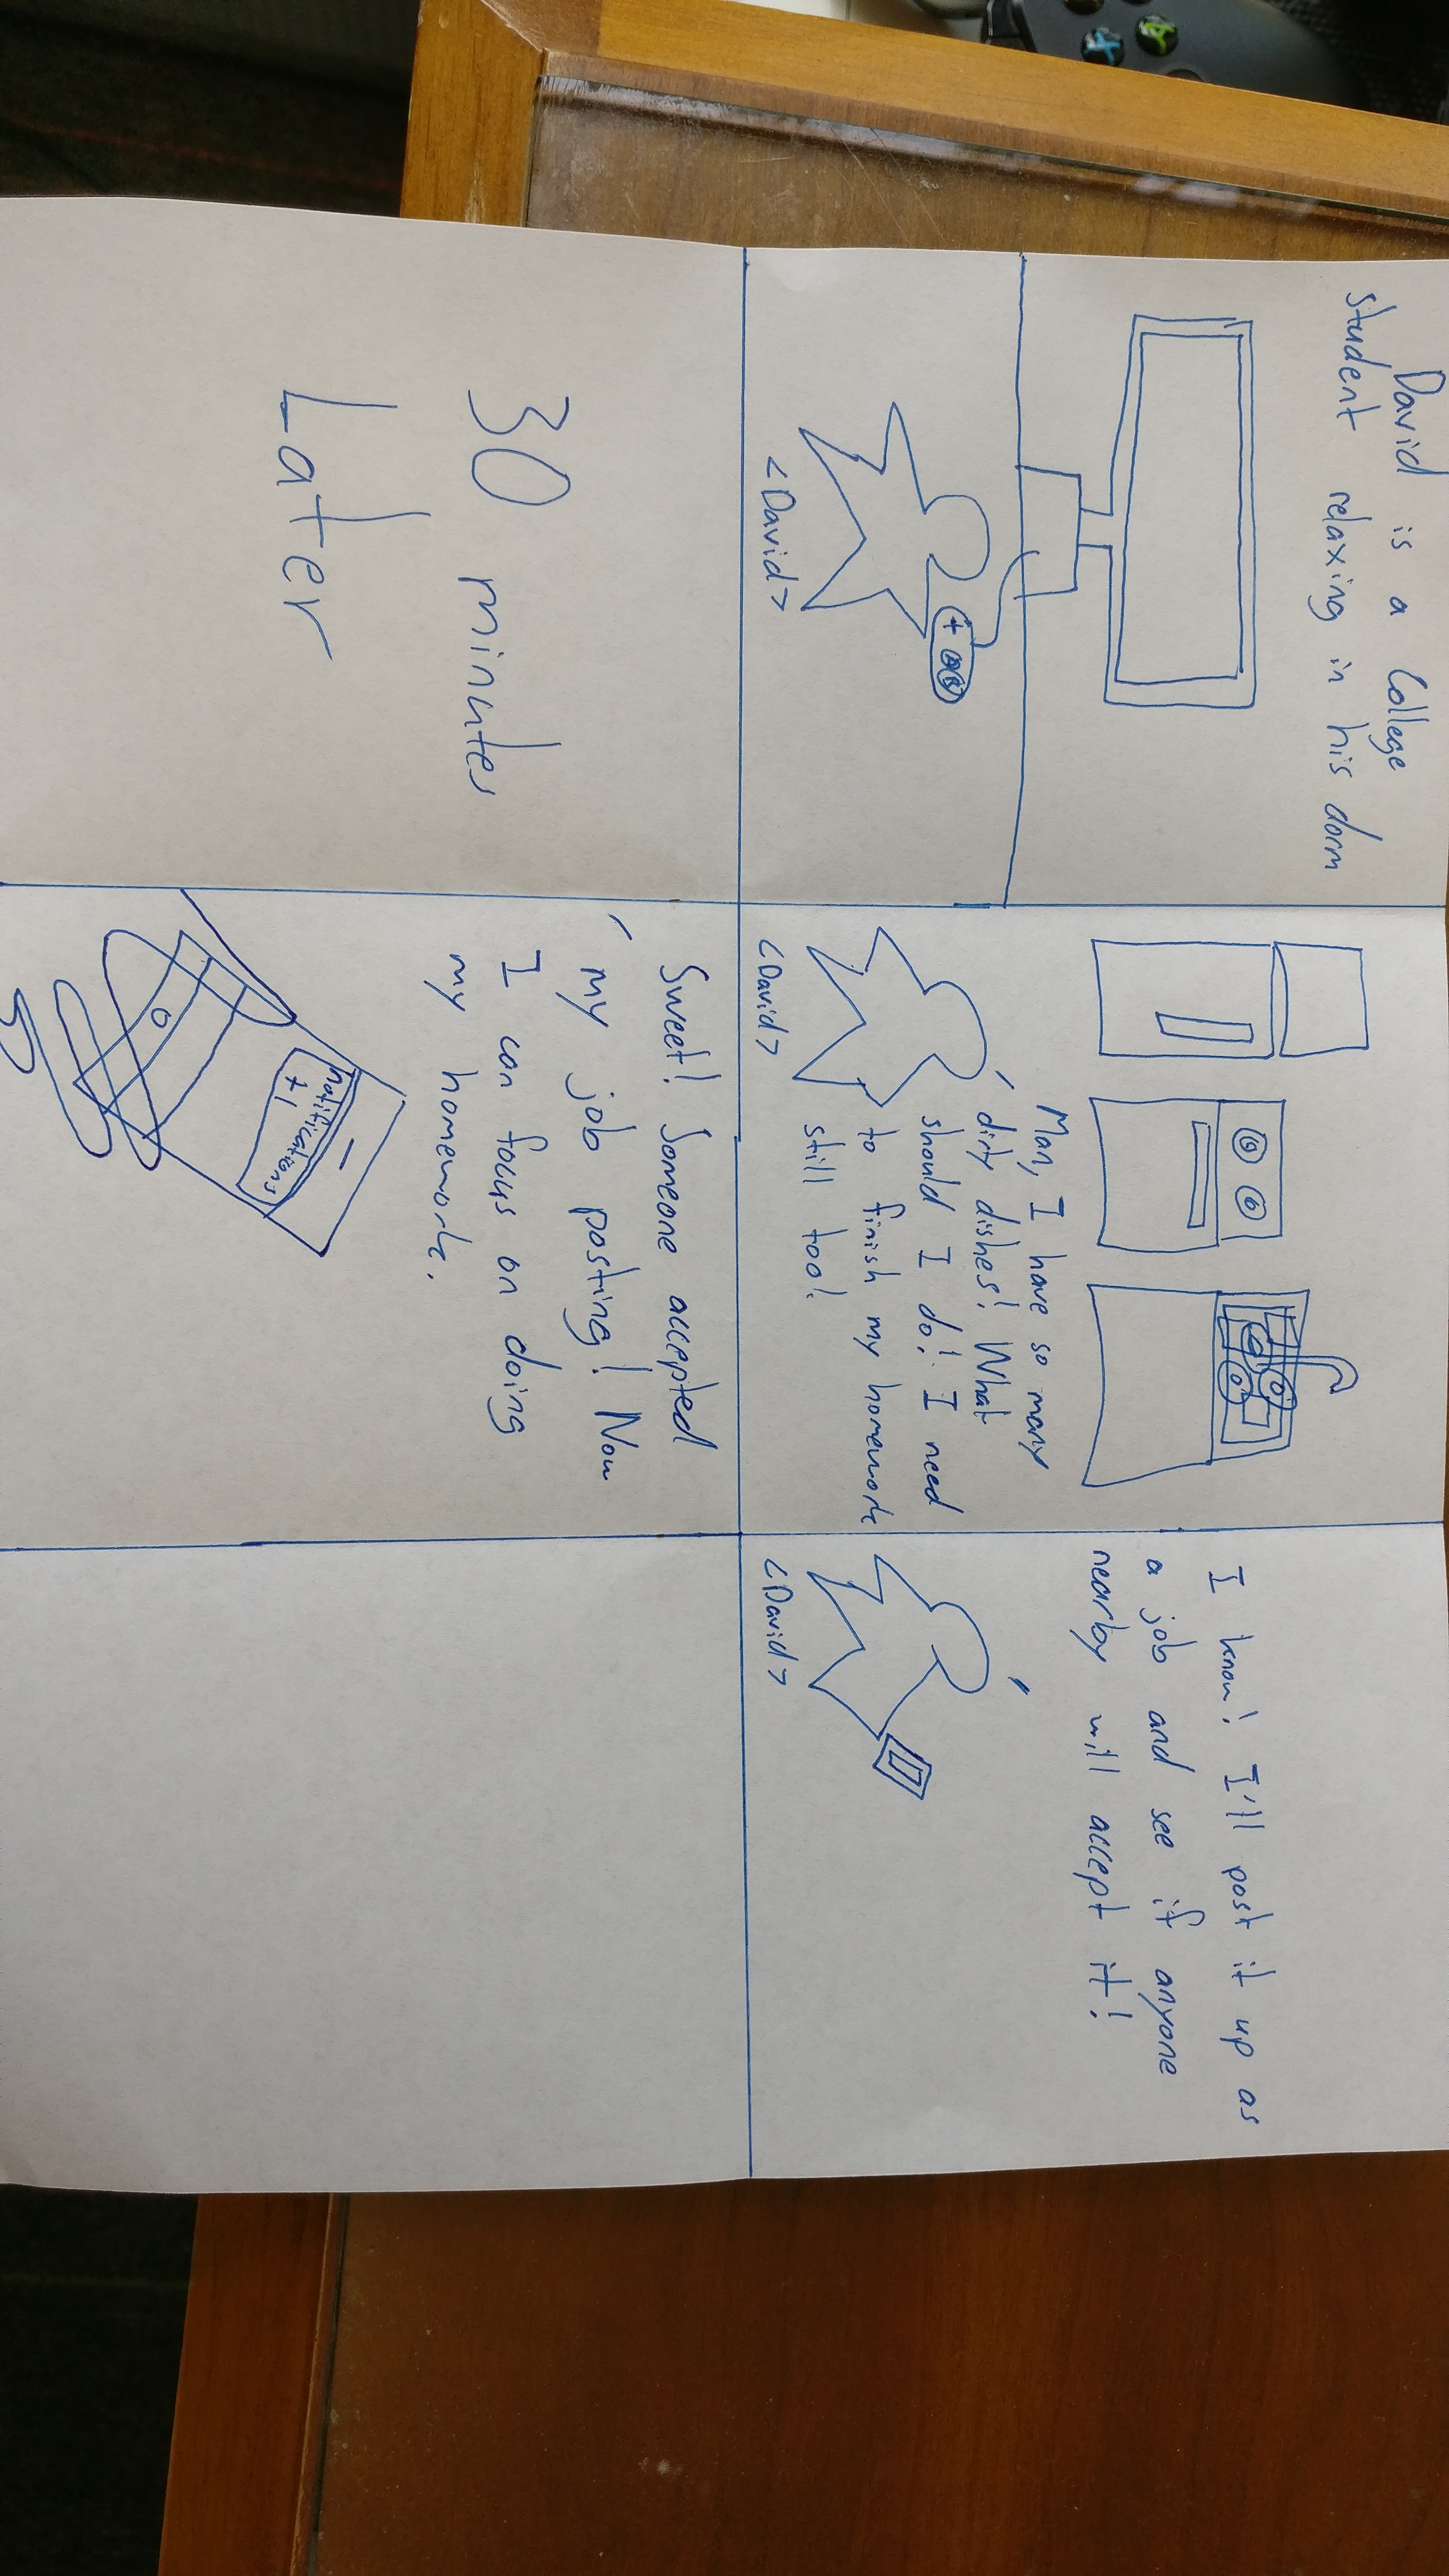 David is a College
student relaxing in his dorm
A B
<David>
Man, I have so many
dirty dishes! What
should I do! I need
to finish my homework
still too!
<David>
I know! I'll post it up as
a job and see if anyone
nearby will accept it!
<David>
30 minutes
Later
Sweet! Someone accepted
my job posting! Now
I can focus on doing
my homework.
notifications
+1
X